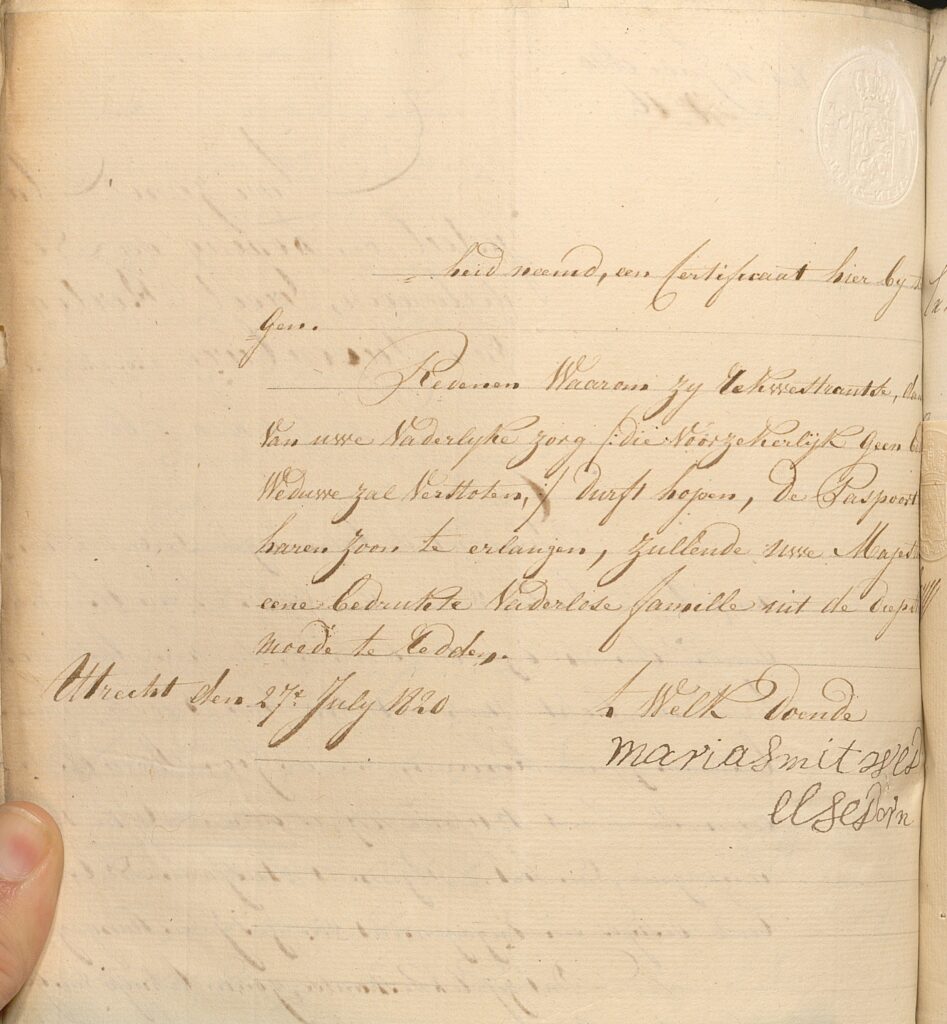 heid neemd, een Certificaat hier by
gen.
Redenen Waarom zy Rekwestrante,
Van uwe Vaderlyke zorg /: die Voorzekerlijk Geen
Weduwe zal Verstoten, :/ durft hopen, De Paspoort
haren zoon te erlangen, zullende uwe Majst
eene bedrukte Vaderlose famille uit de Diepst
moede te Redden.
Utrecht den 27e July 1820
't Welk Doende
maria smit wed
elsedorn